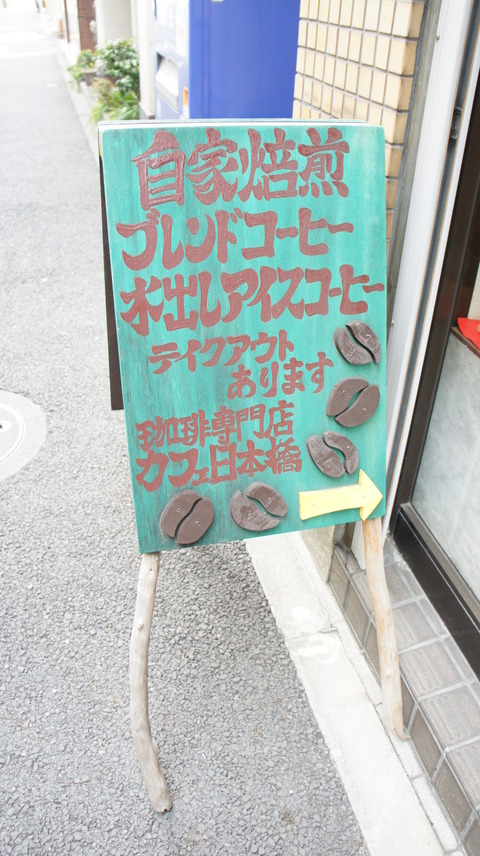 自家焙煎
ブレンドコーヒー
水出しアイスコーヒー
テイクアウト
あります
珈琲専門店
カフェ日本橋